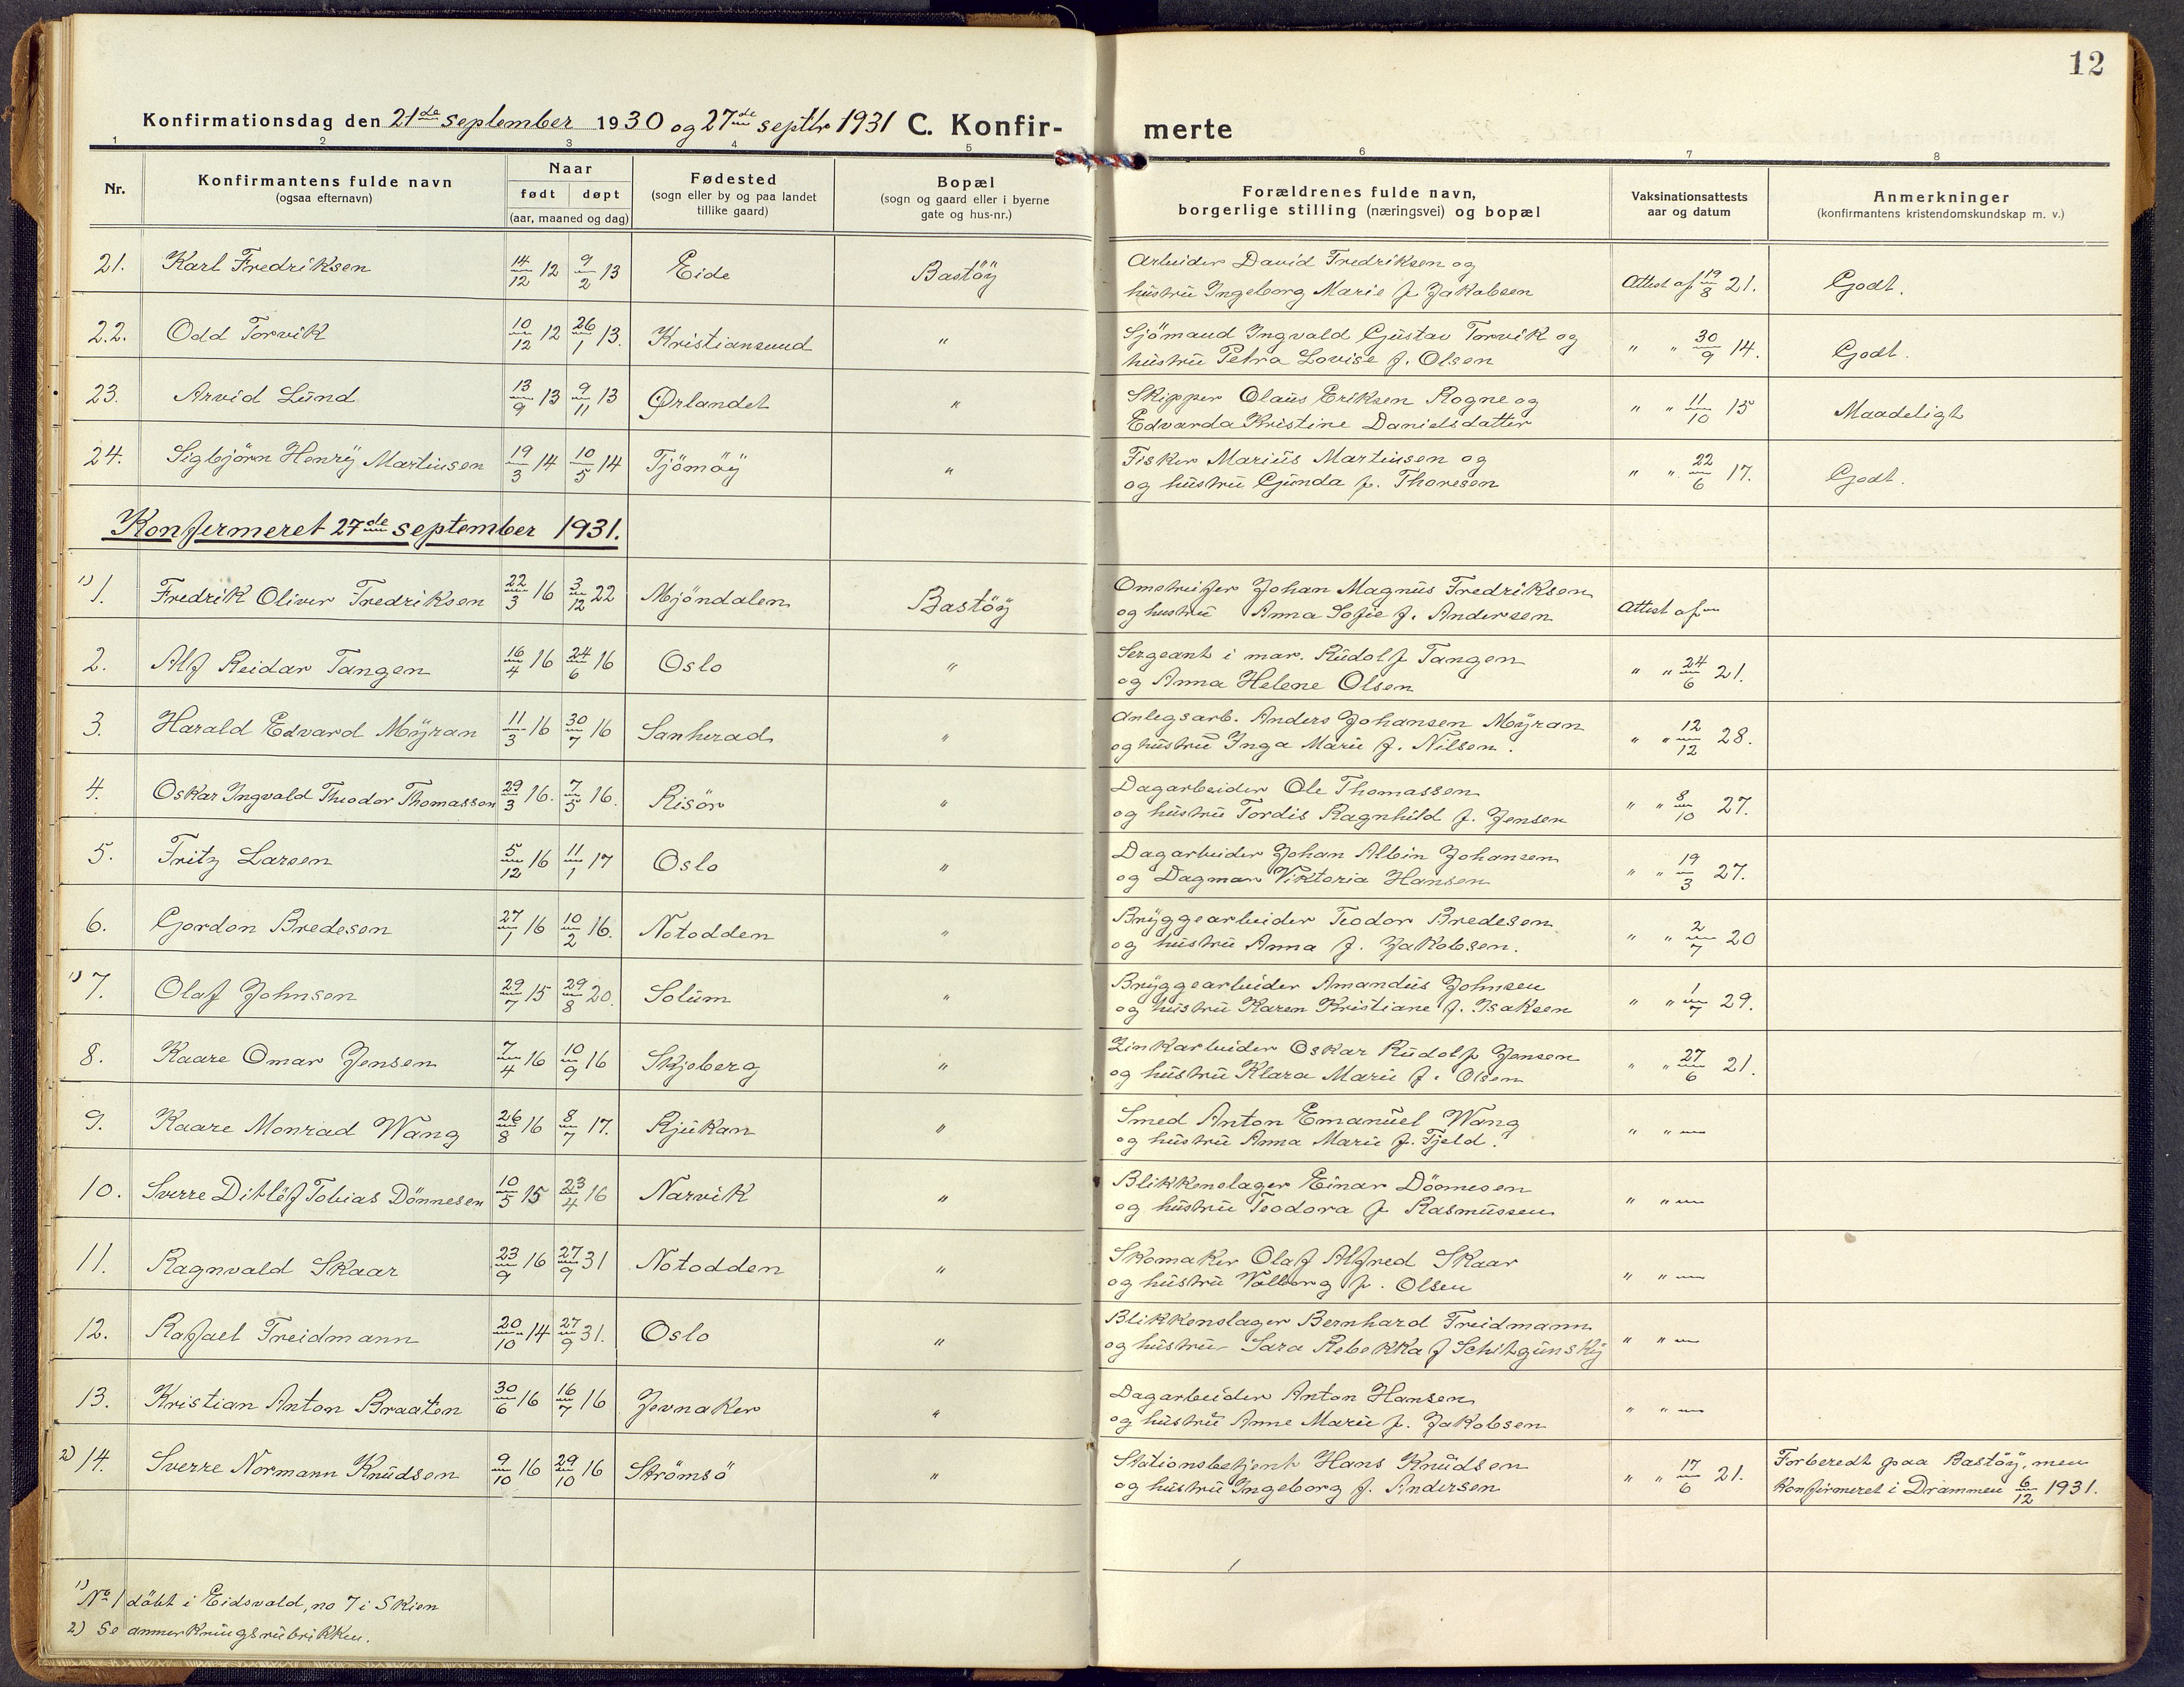 12
Konfirmationsdag den 21de september 1930 og 27de septbr 1931 C. Konfirmerte
1 2 3 4 5 6 7 8
Nr. Konfirmantens fulde navn (ogsaa efternavn) Naar født døpt (aar, maaned og dag) Fødested (sogn eller by og paa landet tillike gaard) Bopæl (sogn og gaard eller i byerne gate og hus-nr.) Forældrenes fulde navn, borgerlige stilling (næringsvei) og bopæl Vaksinationsattests aar og datum Anmerkninger (konfirmantens kristendomskundskap m. v.)
21. Karl Fredriksen 14/12 12 9/2 13 Eide Bastöy Arbeider David Fredriksen og hustru Ingeborg Marie f. Jakobsen Attest af 19/8 21. Godt.
22. Odd Torvik 10/12 12 26/1 13. Kristiansund " Sjömand Ingvald Gustav Torvik og hustru Petra Lovise f. Olsen " " 30/9 14. Godt.
23. Arvid Lund 13/9 13 9/11 13 Ørlandet " Skipper Olaus Eriksen Rogne og Edvarda Kristine Danielsdatter " " 11/10 15 Maadeligt
24. Sigbjörn Henry Martinsen 19/3 14 10/5 14 Tjömöy " Fisker Marius Martinsen og og hustru Gunda f. Thoresen " " 22/6 17. Godt.
Konfirmeret 27de september 1931.
1) 1. Fredrik Oliver Fredriksen 22/3 16 3/12 22 Mjöndalen Bastöy Omstreifer Johan Magnus Fredriksen og hustru Anna Sofie f. Andersen Attest af —
2. Alf Reidar Tangen 16/4 16 24/6 16 Oslo " Sergeant i mar. Rudolf Tangen og Anna Helene Olsen " " 24/6 21.
3. Harald Edvard Myran 11/3 16 30/7 16 Sanherad " Anlegsarb. Anders Johansen Myran og hustru Inga Marie f. Nilsen. " " 12/12 28.
4. Oskar Ingvald Theodor Thomassen 29/3 16. 7/5 16. Risör " Dagarbeider Ole Thomassen og hustru Tordis Ragnhild f. Jensen " " 8/10 27.
5. Fritz Larsen 5/12 16 11/1 17 Oslo " Dagarbeider Johan Albin Johansen og Dagmar Viktoria Hansen " " 19/3 27.
6. Gordon Bredesen 27/1 16 10/2 16. Notodden " Bryggearbeider Teodor Bredesen og hustru Anna f. Jakobsen. " " 2/7 20
1) 7. Olaf Johnsen 29/7 15 29/8 20. Solum " Bryggearbeider Amandus Johnsen og hustru Karen Kristiane f. Isaksen " " 1/7 29.
8. Kaare Omar Jensen 7/4 16 10/9 16 Skjeberg " Zinkarbeider Oskar Rudolf Jensen og hustru Klara Marie f. Olsen " " 27/6 21.
9. Kaare Monrad Wang 26/8 16 8/7 17. Rjukan " Smed Anton Emanuel Wang og hustru Anna Marie f. Fjeld. " " —
10. Sverre Ditlöf Tobias Dönnesen 10/5 15 23/4 16 Narvik " Blikkenslager Einar Dönnesen og hustru Teodora f Rasmussen " " —
11. Ragnvald Skaar 23/9 16 27/9 31 Notodden " Skomaker Olaf Alfred Skaar og hustru Valborg f. Olsen " " —
12. Rafael Freidmann 20/10 14 27/9 31. Oslo " Blikkenslager Bernhard Freidmann og hustru Sara Rebekka f Schitgunsky " " —
13. Kristian Anton Braaten 30/6 16 16/7 16 Jevnaker " Dagarbeider Anton Hansen og hustru Anne Marie f. Jakobsen " " —
2) 14. Sverre Normann Knudsen 9/10 16 29/10 16 Strömsö " Stationsbetjent Hans Knudsen og hustru Ingeborg f. Andersen " " 17/6 21. Forberedt paa Bastöy, men konfirmeret i Drammen 6/12 1931.
1) No 1 döbt i Eidsvold, no 7 i Skien
2) Se anmerkningsrubrikken.